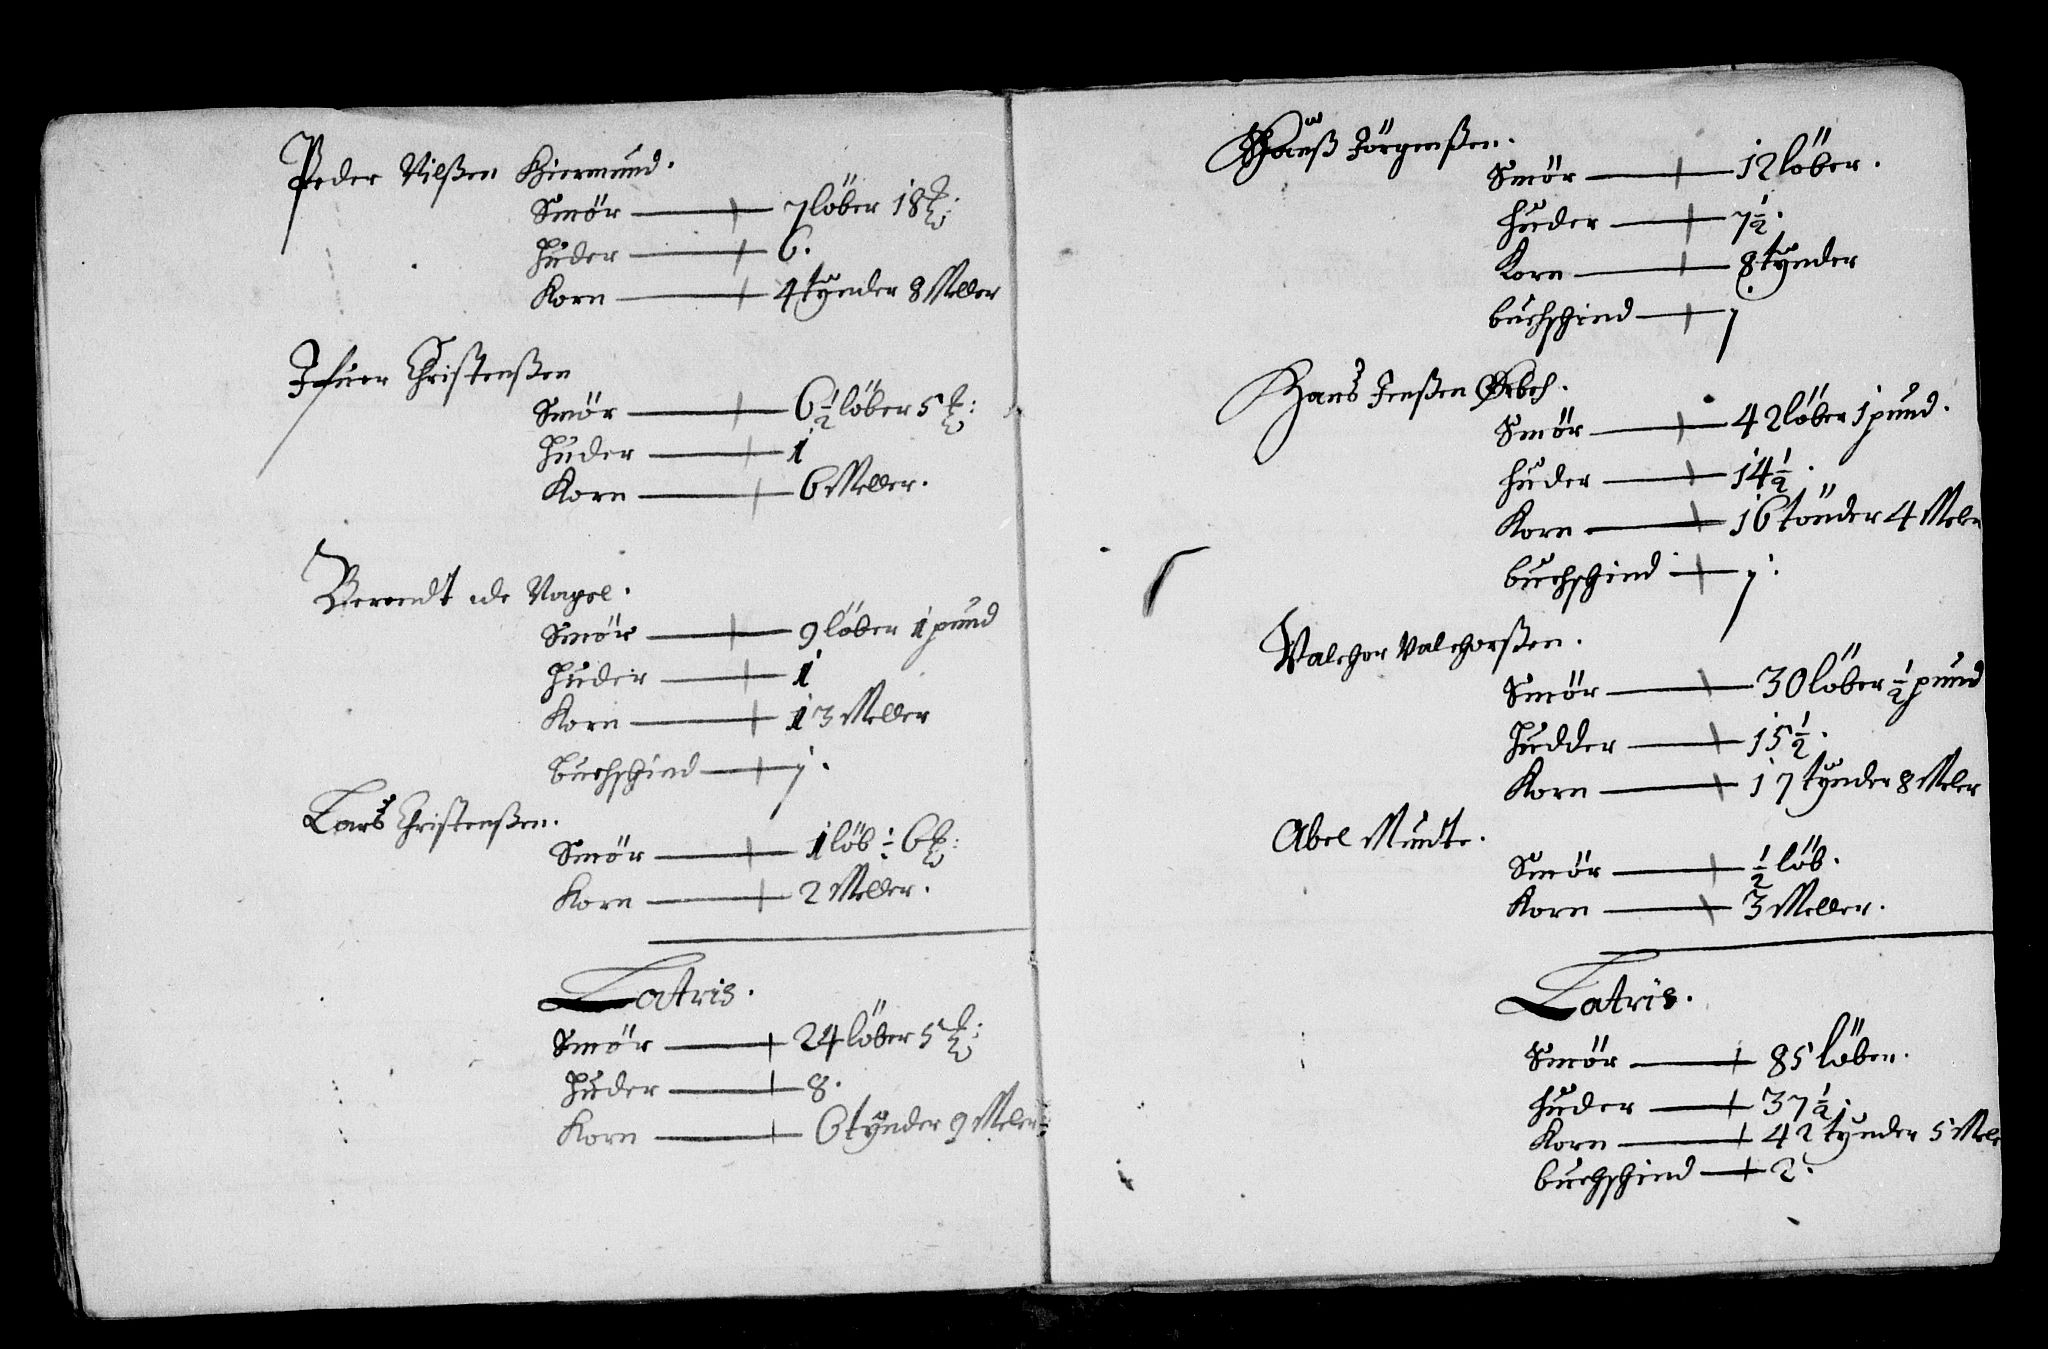 Peder Nilßen Hiermund.
Smör — 7 löber 18 ℔:
Huder — 6.
Korn — 4 tÿnder 8 Meller
Ifuer Christenßen
Smör — 6 ½ löber 5 ℔:
Huder — 1
Korn — 6 Meller.
Berendt de Nagel.
Smör — 9 löber 1 pund
Huder — 1
Korn — 13 Meller
buchschind — 1.
Lars Christenßen.
Smör — 1 löb ÷ 6 ℔:
Korn — 2 Meller.
Latris.
Smör — 24 löber 5 ℔:
Huder — 8.
Korn — 6 tÿnder 9 Meler:
Hanß Jörgenßen.
Smör — 12 löber.
huder — 7 ½.
Korn — 8 tÿnder
buchschind — 1
Hans Jenßen Ørbech.
Smör — 42 löber 1 pund.
huder — 14 ½.
Korn — 16 tönder 4 Meler
buchschind — 1.
Valchor Valchorßen.
Smör — 30 löber ½ pund
Hudder — 15 ½.
Korn — 17 tÿnder 8 Meler
Abel Mundte.
Smör — ½ löb.
Korn — 3 Meller.
Latris.
Smör — 85 löber.
huder — 37 ½.
Korn — 42 tÿnder 5 Mele
buchschind — 2.